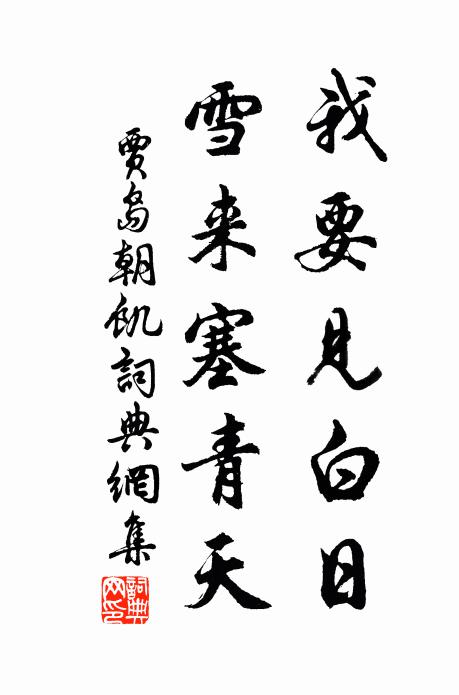 我要見白日
雪来塞青天
賈島朝飢詞典網集
詞典網印